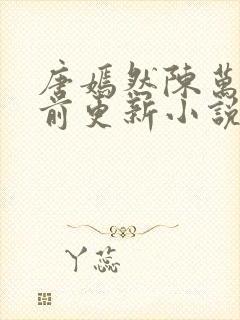 唐嫣然陳萬
前更新小說
丫蕊